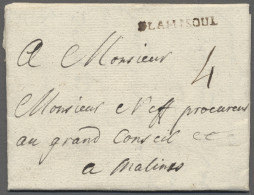 BLAMMOUL
A Monsieur
4
Monsieur Neff procureur
au grand Conseil &c
a Malines